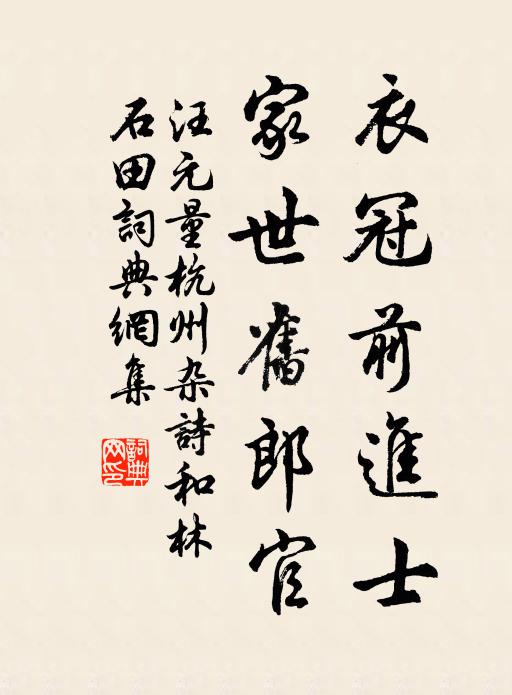 衣冠前進士
家世舊郎官
汪元量杭州杂詩和林
石田詞典網集
詞典
网印